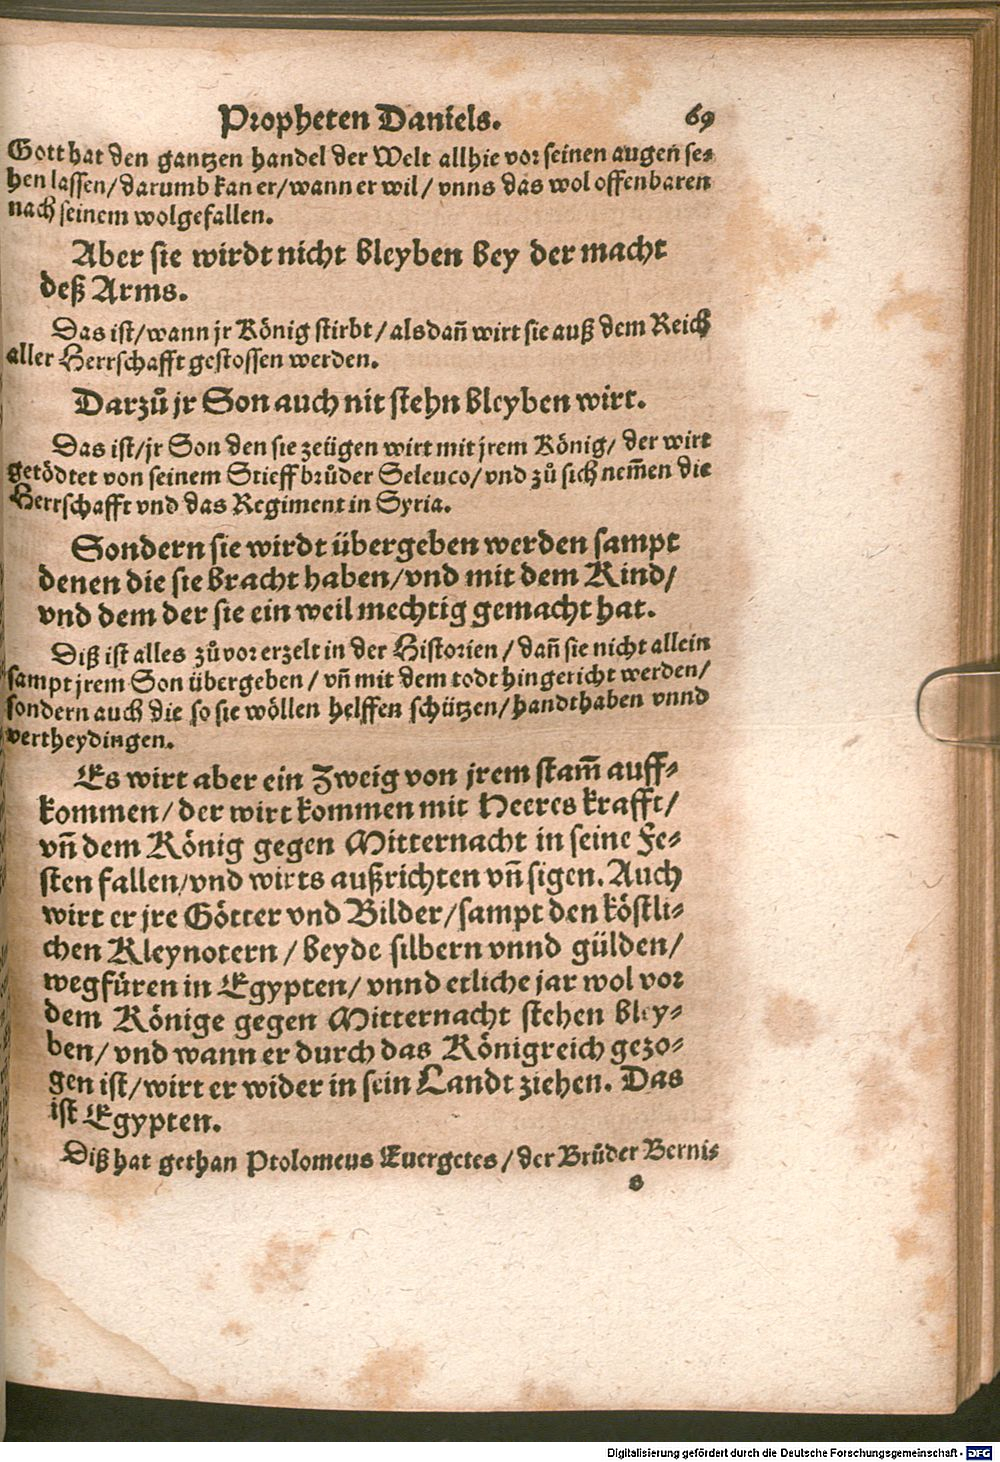 Propheten Daniels. 69
Gott hat den gantzen handel der Welt allhie vor seinen augen se-
hen lassen/darumb kan er/wann er wil/vnns das wol offenbaren
nach seinem wolgefallen.
Aber sie wirdt nicht bleyben bey der macht
deß Arms.
Das ist/wann jr König stirbt/alsdañ wirt sie auß dem Reich
aller Herrschafft gestossen werden.
Darzů jr Son auch nit stehn bleyben wirt.
Das ist/jr Son den sie zeügen wirt mit jrem König/der wirt
getödtet von seinem Stieffbrůder Seleuco/vnd zů sich nem̃en die
Herrschafft vnd das Regiment in Syria.
Sondern sie wirdt übergeben werden sampt
denen die sie bracht haben/vnd mit dem Kind/
vnd dem der sie ein weil mechtig gemacht hat.
Diß ist alles zůvor erzelt in der Historien/dañ sie nicht allein
sampt jrem Son übergeben/vñ mit dem todt hingericht werden/
sondern auch die so sie wöllen helffen schützen/handthaben vnnd
vertheydingen.
Es wirt aber ein Zweig von jrem stam̃ auff-
kommen/der wirt kommen mit Heeres krafft/
vñ dem König gegen Mitternacht in seine Fe-
sten fallen/vnd wirts außrichten vñ sigen. Auch
wirt er jre Götter vnd Bilder/sampt den köstli-
chen Kleynotern/beyde silbern vnnd gülden/
wegfüren in Egypten/vnnd etliche jar wol vor
dem Könige gegen Mitternacht stehen bley-
ben/vnd wann er durch das Königreich gezo-
gen ist/wirt er wider in sein Landt ziehen. Das
ist Egypten.
Diß hat gethan Ptolomeus Euergetes/der Brůder Berni-
s
Digitalisierung gefördert durch die Deutsche Forschungsgemeinschaft - DFG